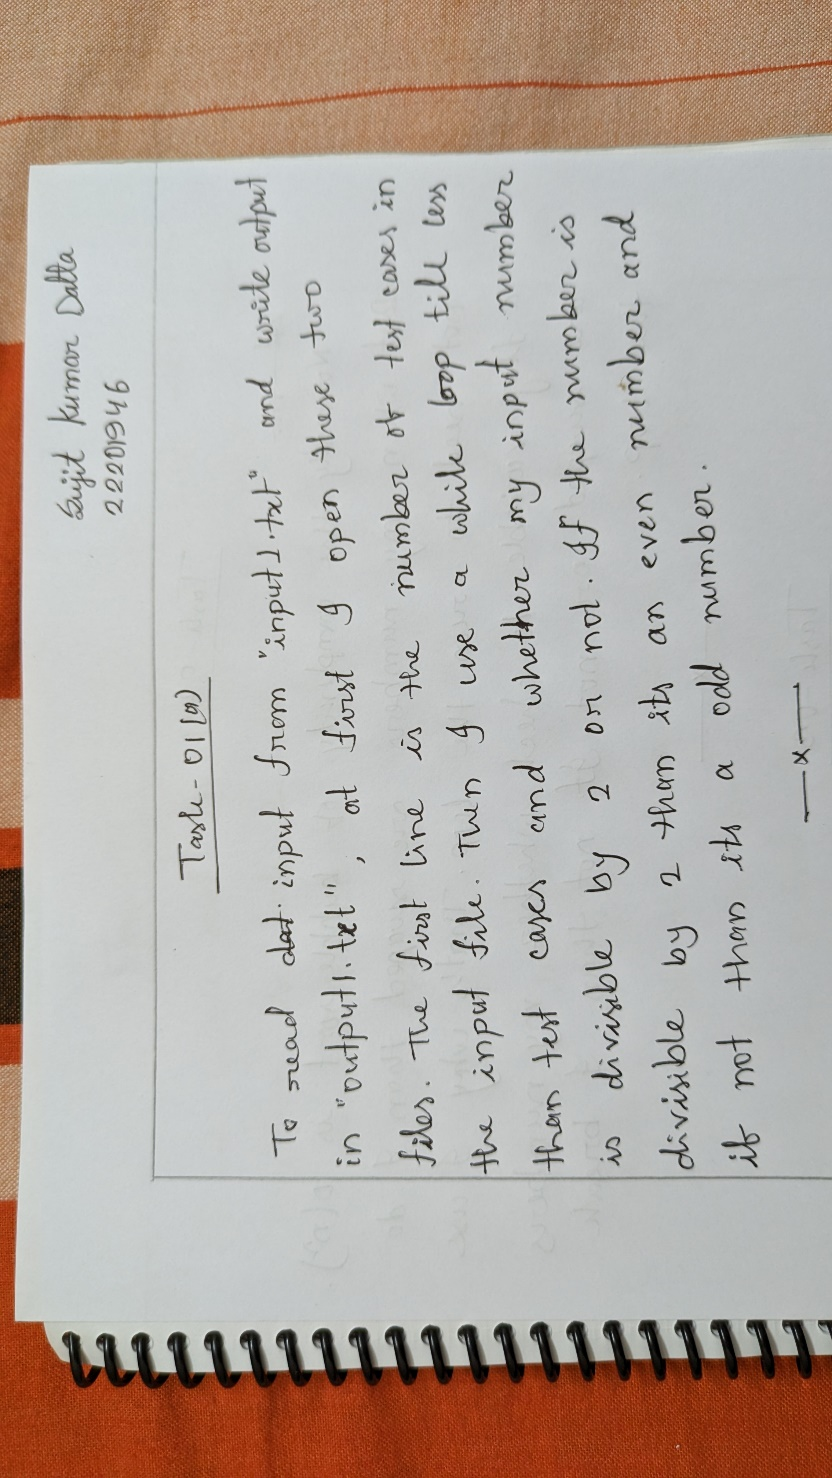 Sujit Kumar Datta
22201946
Task-01(a)
To read dat. input from "input1.txt" and write output
in "output1.txt", at first I open these two
files. The first line is the number of test cases in
the input file. Then I use a while loop till less
than test cases and whether my input number
is divisible by 2 or not. If the number is
divisible by 2 than its an even number and
if not than its a odd number.
—x—